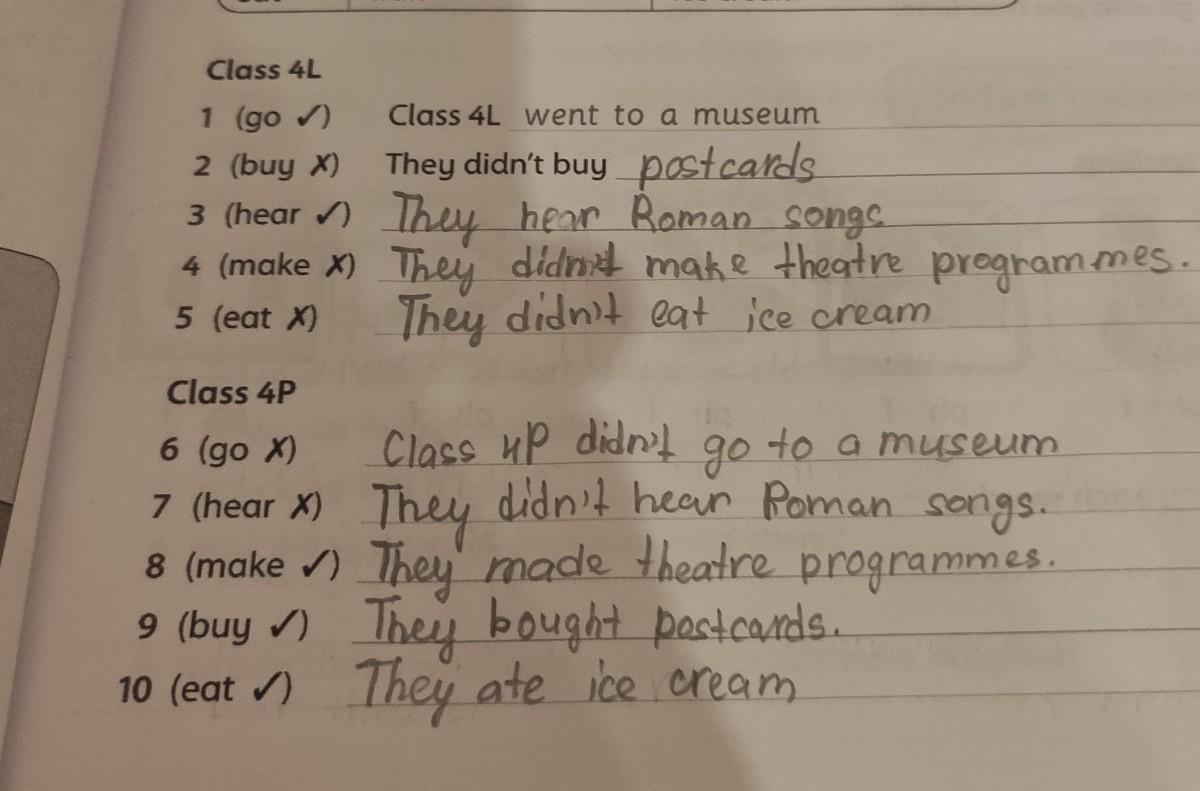 Class 4L
1 (go ✓) Class 4L went to a museum
2 (buy ✗) They didn't buy postcards
3 (hear ✓) They hear Roman songs
4 (make ✗) They didn't make theatre programmes.
5 (eat ✗) They didn't eat ice cream
Class 4P
6 (go ✗) Class 4P didn't go to a museum
7 (hear ✗) They didn't hear Roman songs.
8 (make ✓) They made theatre programmes.
9 (buy ✓) They bought postcards.
10 (eat ✓) They ate ice cream